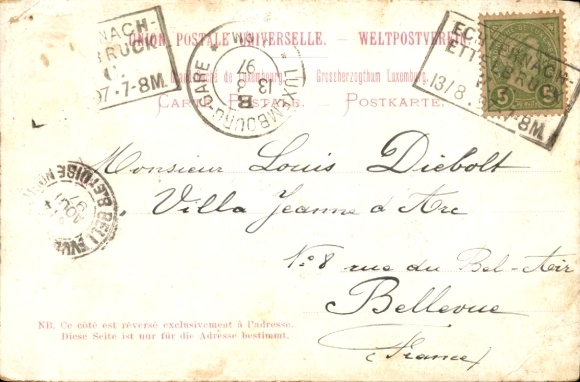 UNION POSTALE UNIVERSELLE. – WELTPOSTVEREIN.
Grossherzogthum Luxemburg.
CARTE POSTALE. – POSTKARTE.
NACH-
BRUCK
97.7-8M
LUXEMBOURG-GARE
8M
97
13 8
ECHTERNACH-
ETTELBRUCK
13/8. 8M
5 5
BELLEVUE
AOUT
97
Monsieur Louis Diebolt
Villa Jeanne d'Arc
N° 8 rue du Bel-Air
Bellevue
(France)
NB. Ce côté est réservé exclusivement à l'adresse.
Diese Seite ist nur für die Adresse bestimmt.